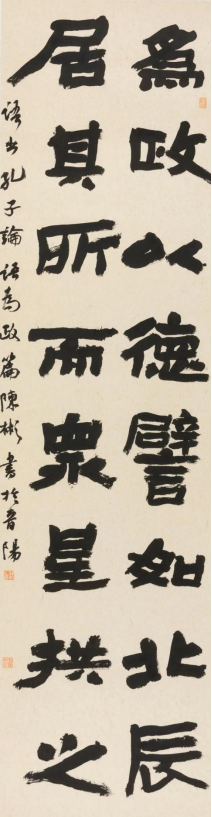 為政以德譬如北辰
居其所而衆星拱之
語出孔子論語為政篇陳彬書於晉陽